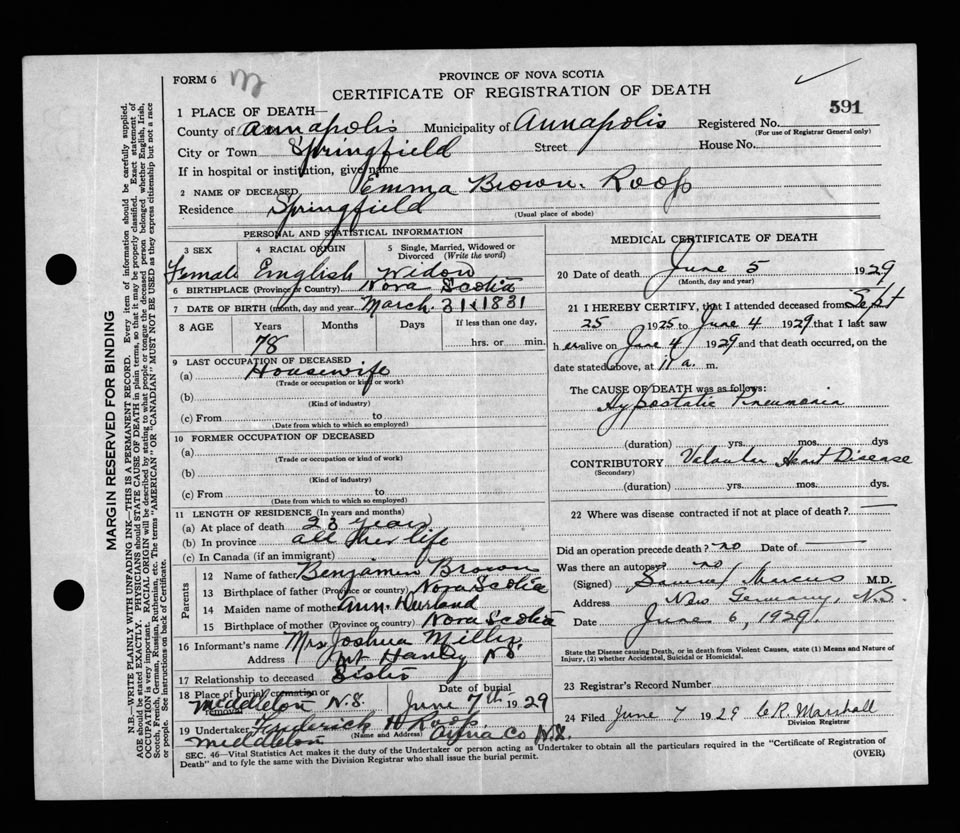 FORM 6
M
PROVINCE OF NOVA SCOTIA
CERTIFICATE OF REGISTRATION OF DEATH
591
1 PLACE OF DEATH—
County of Annapolis Municipality of Annapolis Registered No.
(For use of Registrar General only)
City or Town Springfield Street House No.
If in hospital or institution, give name
2 NAME OF DECEASED, Emma Brown Roop
Residence Springfield (Usual place of abode)
PERSONAL AND STATISTICAL INFORMATION
3 SEX 4 RACIAL ORIGIN 5 Single, Married, Widowed or Divorced (Write the word)
Female English Widow
6 BIRTHPLACE (Province or Country) Nova Scotia
7 DATE OF BIRTH (month, day and year) March 31 1831
8 AGE Years Months Days If less than one day,
78 hrs. or min.
9 LAST OCCUPATION OF DECEASED
(a) Housewife
(Trade or occupation or kind or work)
(b)
(Kind of industry)
(c) From to
(Date from which to which so employed)
10 FORMER OCCUPATION OF DECEASED
(a)
(Trade or occupation or kind of work)
(b)
(Kind of industry)
(c) From to
(Date from which to which so employed)
11 LENGTH OF RESIDENCE (In years and months)
(a) At place of death 23 years
(b) In province all her life
(c) In Canada (if an immigrant)
Parents
12 Name of father Benjamin Brown
13 Birthplace of father (Province or country) Nova Scotia
14 Maiden name of mother Ann
15 Birthplace of mother (Province or country) Nova Scotia
16 Informant's name Mrs Joshua Miller
Address Mt Hanly N S
17 Relationship to deceased Sister
18 Place of burial cremation or removal Middleton N.S. Date of burial June 7th 1929
19 Undertaker Frederick H Roop
(Name and Address)
Middleton Anna Co N.S.
MEDICAL CERTIFICATE OF DEATH
20 Date of death June 5 1929
(Month, day and year)
21 I HEREBY CERTIFY, that I attended deceased from Sept
25 1925 to June 4 1929 that I last saw
h er alive on June 4 1929 and that death occurred, on the
date stated above, at 11 a. m.
The CAUSE OF DEATH was as follows:
Hypostatic Pneumonia
(duration) yrs. mos. dys
CONTRIBUTORY Heart Disease
(Secondary)
(duration) yrs. mos. dys.
22 Where was disease contracted if not at place of death?
Did an operation precede death? no Date of
Was there an autopsy no
(Signed) Samuel Marcus M.D.
Address New Germany, N.S.
Date June 6, 1929
State the Disease causing Death, or in death from Violent Causes, state (1) Means and Nature of
Injury, (2) whether Accidental, Suicidal or Homicidal.
23 Registrar's Record Number
24 Filed June 7 1929 C R. Marshall
Division Registrar
SEC. 46—Vital Statistics Act makes it the duty of the Undertaker or person acting as Undertaker to obtain all the particulars required in the "Certificate of Registration of
Death" and to fyle the same with the Division Registrar who shall issue the burial permit.
(OVER)
MARGIN RESERVED FOR BINDING
N.B.—WRITE PLAINLY WITH UNFADING INK—THIS IS A PERMANENT RECORD. Every item of information should be carefully supplied.
AGE should be stated EXACTLY. PHYSICIANS should STATE CAUSE OF DEATH in plain terms, so that it may be properly classified. Exact statement of
OCCUPATION is very important. RACIAL ORIGIN will be described by stating to what people or tongue the deceased person belonged whether English, Irish,
Scotch, French, German, Russian, Ruthenian, etc. The terms "AMERICAN" OR "CANADIAN" MUST NOT BE USED as they express citizenship but not a race
or people. See instructions on back of Certificate.